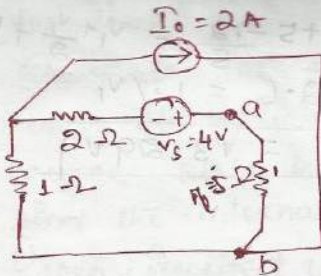 I₀ = 2A
- +
a
2 Ω
Vs = 4V
1 Ω
5 Ω
b